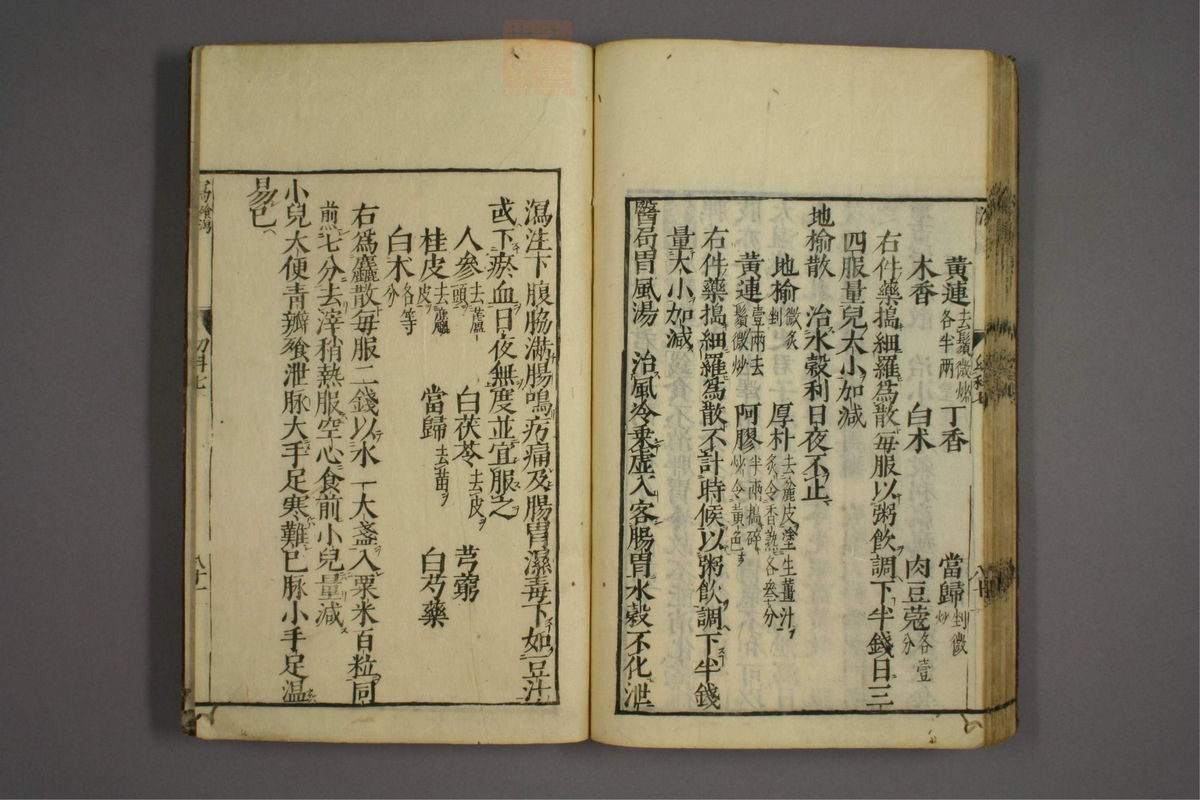 黄連去鬚微炒各半兩 丁香 當歸剉微炒
木香 白朮 肉豆蔻各壹分
右件藥搗細羅爲散每服以粥飲調下半錢日三
四服量兒大小加減
地榆散 治水穀利日夜不止
地榆微炙剉 厚朴去麄皮塗生薑汁炙令香熟各叁分
黄連壹兩去鬚微炒 阿膠半兩搗碎炒令黄色
右件藥搗細羅爲散不計時候以粥飲調下半錢
量大小加減
醫局胃風湯 治風冷乗虚入客腸胃水穀不化泄
瀉注下腹脇滿腸鳴㽲痛及腸胃濕毒下如豆汁
或下瘀血日夜無度並宜服之
人參去蘆頭 白茯苓去皮 芎藭
桂皮去麄皮 當歸去苗 白芍藥
白朮各等分
右爲麤散每服二錢以水一大盞入粟米百粒同
煎七分去滓稍熱服空心食前小兒量減
小兒大便青瓣飱泄脉大手足寒難已脉小手足温
易已